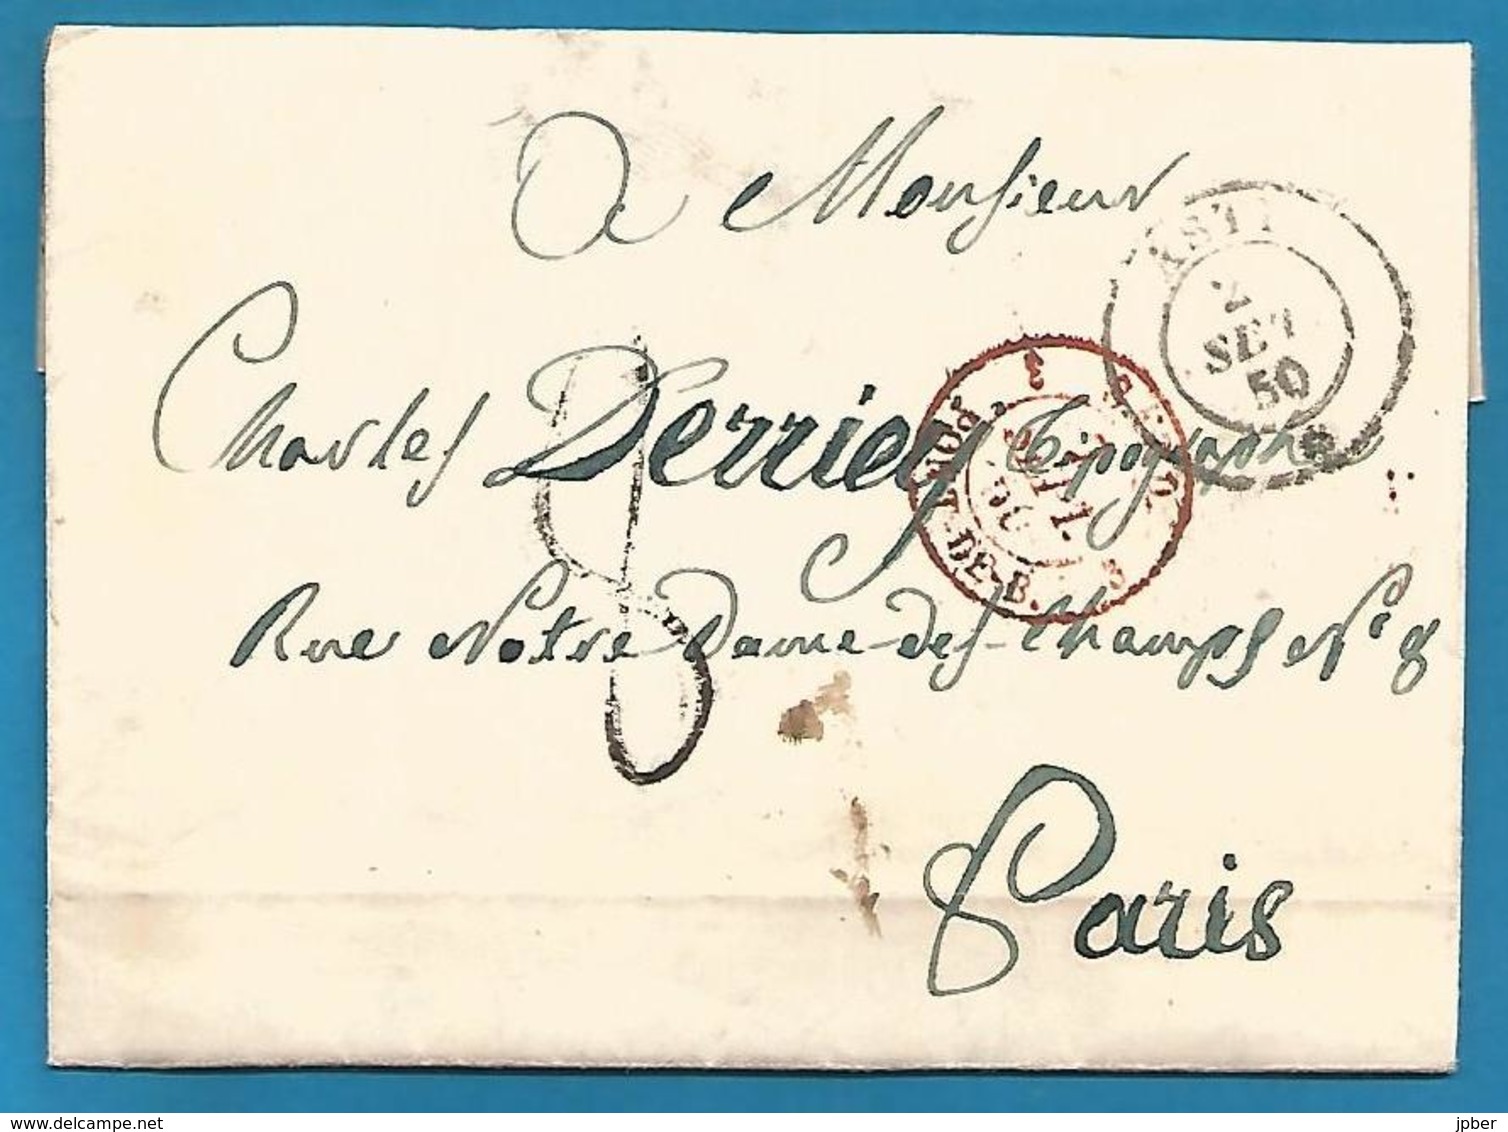 A Monsieur
ASTI
2
SET
50
Charles Derriey Tipographe
PONT-DE-B.
3
3
50
Rue Notre Dame des Champs N° 8
8
Paris
www.delcampe.net
jpber